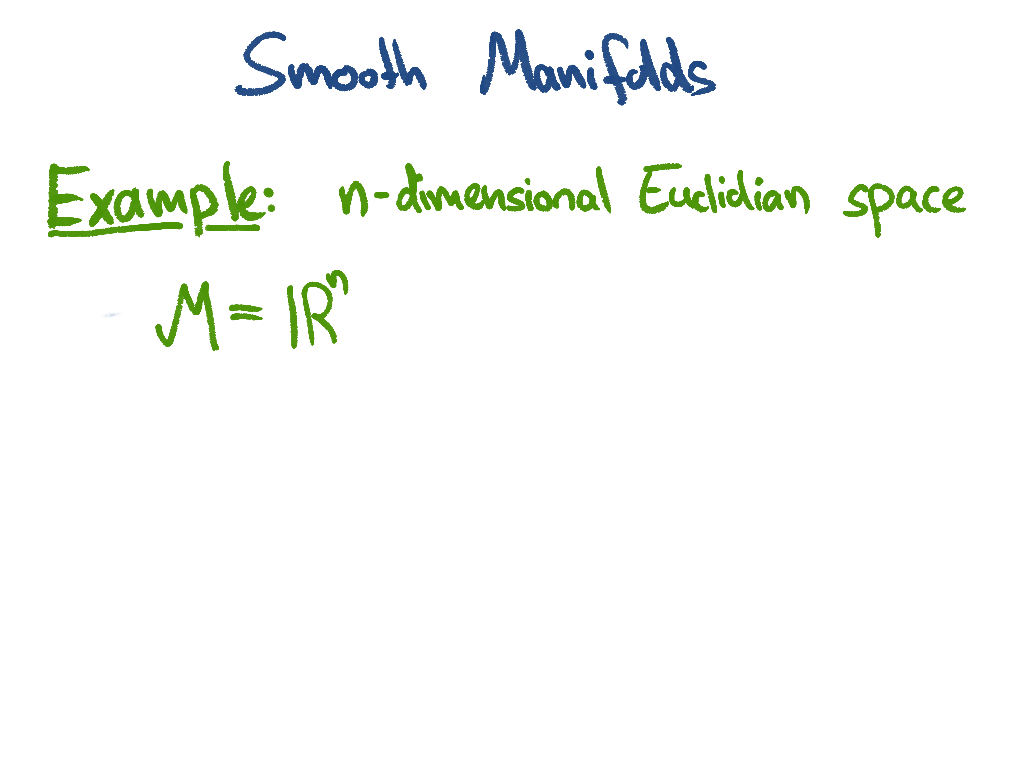 Smooth Manifolds
Example: n-dimensional Euclidian space
M = ℝⁿ